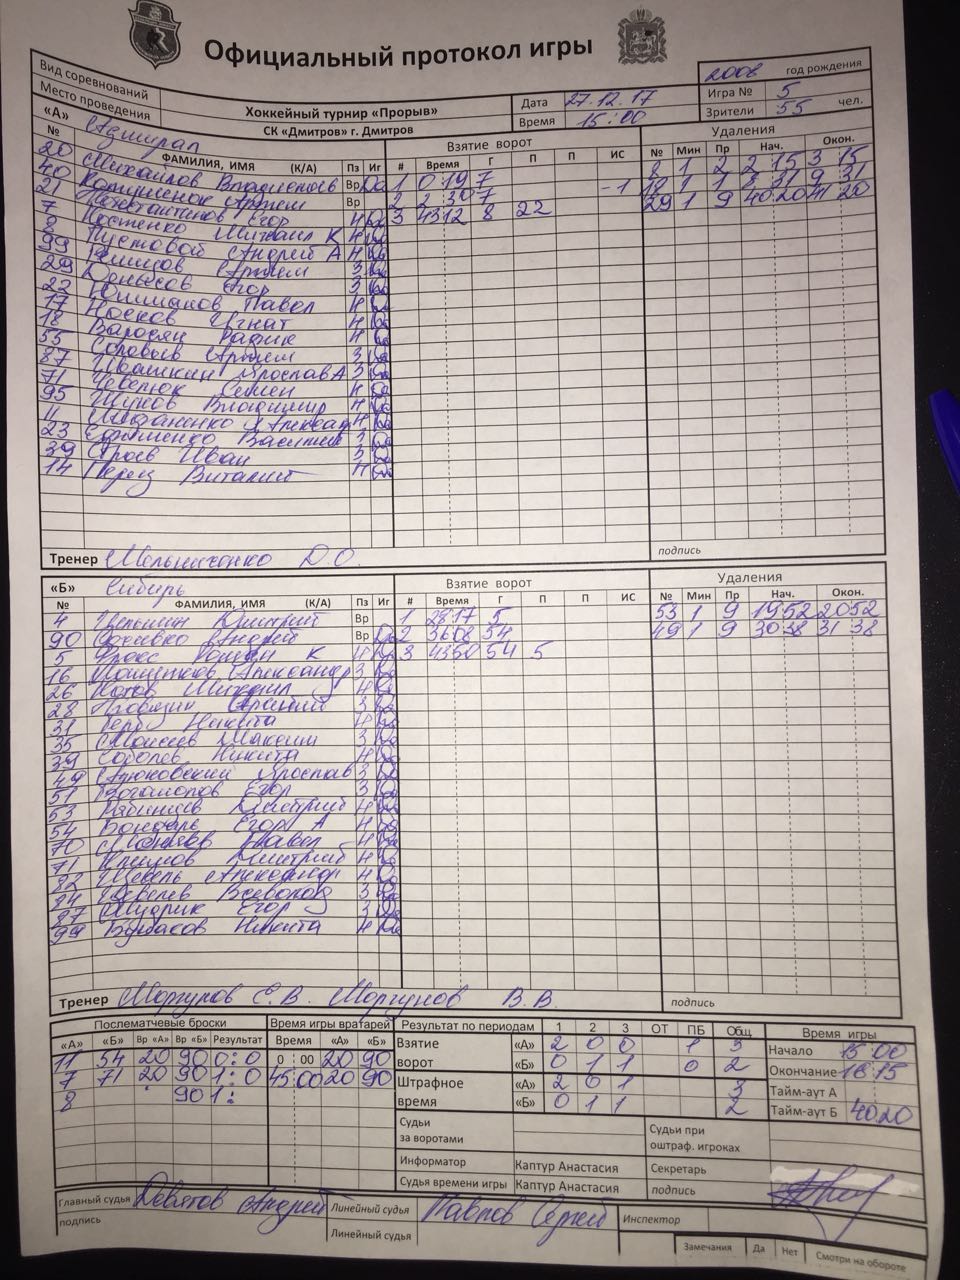 Официальный протокол игры
Вид соревнований Хоккейный турнир «Прорыв» Дата 27.12.17 2008 год рождения
Место проведения СК «Дмитров» г. Дмитров Время 15:00 Игра № 5
Зрители 55 чел.
«А» Адмирал Взятие ворот Удаления
№ ФАМИЛИЯ, ИМЯ (К/А) Пз Иг # Время Г П П ИС № Мин Пр Нач. Окон.
20 Михайлов Владислав Вр Да 1 0 19 7 8 1 2 2 15 3 15
40 Артем Вр 2 2 30 7 -1 18 1 1 8 31 9 31
21 Егор Н 3 43 12 8 22 29 1 9 40 20 41 20
7 Костенко Михаил К Н
8 Пустовой Андрей А Н
99 Артем З
29 Егор З
22 Павел Н
17 Носков Игнат Н
18 Н
55 Соловьев Артем З
87 Ивашкин Ярослав А З
71 Семен Н
95 Жуков Владимир Н
11 Н
23 Василий З
39 Иван З
14 Перец Виталий Н
Тренер Мельниченко Д.О. подпись
«Б» Сибирь Взятие ворот Удаления
№ ФАМИЛИЯ, ИМЯ (К/А) Пз Иг # Время Г П П ИС № Мин Пр Нач. Окон.
4 Дмитрий Вр 1 28 17 5 53 1 9 19 52 20 52
90 Андрей Вр Да 2 36 08 54 49 1 9 30 38 31 38
5 К Н 3 43 50 54 5
16 Александр З
26 Котов Михаил Н
28 З
31 Герб Никита Н
35 Моисеев Максим З
39 Соболев Никита Н
49 Ярослав З
51 Егор З
53 Дмитрий Н
54 Бондарь Егор А Н
70 Павел Н
71 Климов Дмитрий Н
82 Шевель Александр Н
84 Всеволод З
87 Егор З
99 Бурбаков Никита Н
Тренер Моргунов Е.В. Моргунов В.В. подпись
Послематчевые броски Время игры вратарей Результат по периодам 1 2 3 ОТ ПБ Общ. Время игры
«А» «Б» Вр «А» Вр «Б» Результат Время «А» «Б» Взятие ворот «А» 2 0 0 1 3 Начало 15 00
11 54 20 90 0 : 0 0 : 00 20 90 «Б» 0 1 1 0 2 Окончание 16 15
7 71 20 90 1 : 0 45:00 20 90 Штрафное время «А» 2 0 1 3 Тайм-аут А
8 90 1 : «Б» 0 1 1 2 Тайм-аут Б 40 20
Судьи за воротами Судьи при оштраф. игроках
Информатор Каптур Анастасия Секретарь
Судья времени игры Каптур Анастасия подпись
Главный судья Девятов Андрей Линейный судья Павлов Сергей Инспектор
подпись Линейный судья
Замечания Да Нет Смотри на обороте